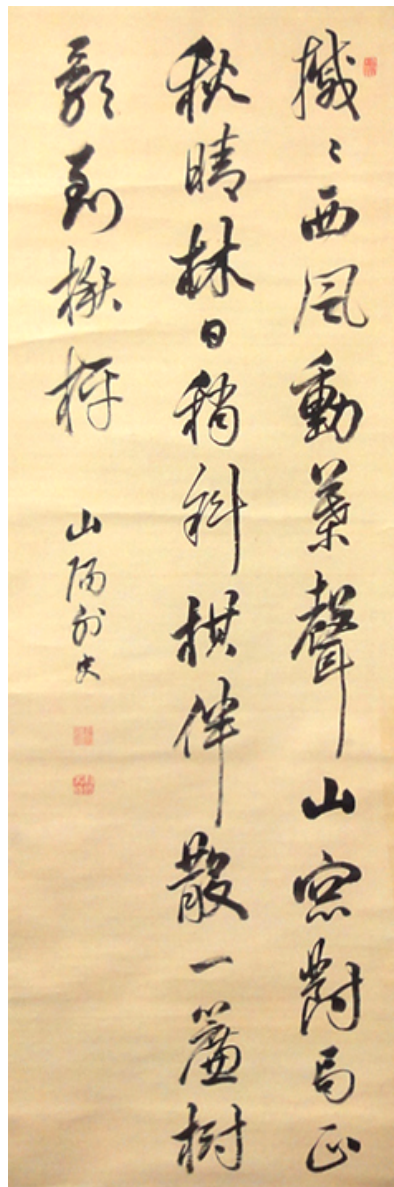 摵〻西風動葉聲山窓對局正
秋晴林日稍斜棋伴散一簾樹
影到楸枰
山陽外史